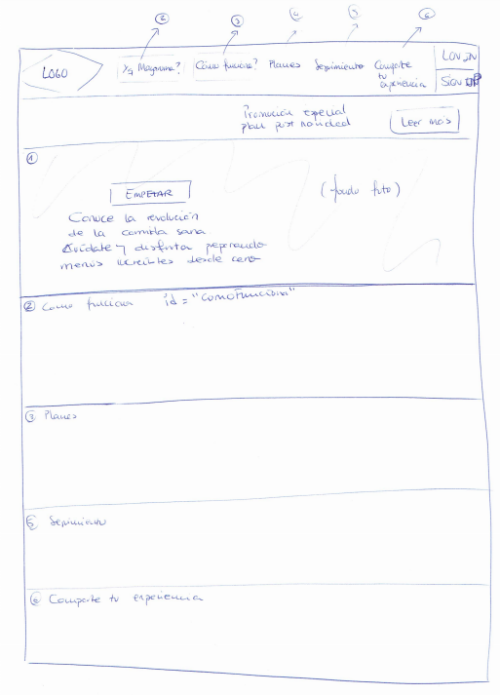 ② ③ ④ ⑤ ⑥
LOGO
Cómo funciona? Planes Seguimiento Comparte tu experiencia
LOG IN
SIGN UP
Promoción especial
plan post navidad
Leer más
①
EMPEZAR
(fondo foto)
Conoce la revolución
de la comida sana
Cuídate y disfruta preparando
menús increíbles desde cero
② Como funciona id = "comoFunciona"
③ Planes
⑤ Seguimiento
⑥ Comparte tu experiencia